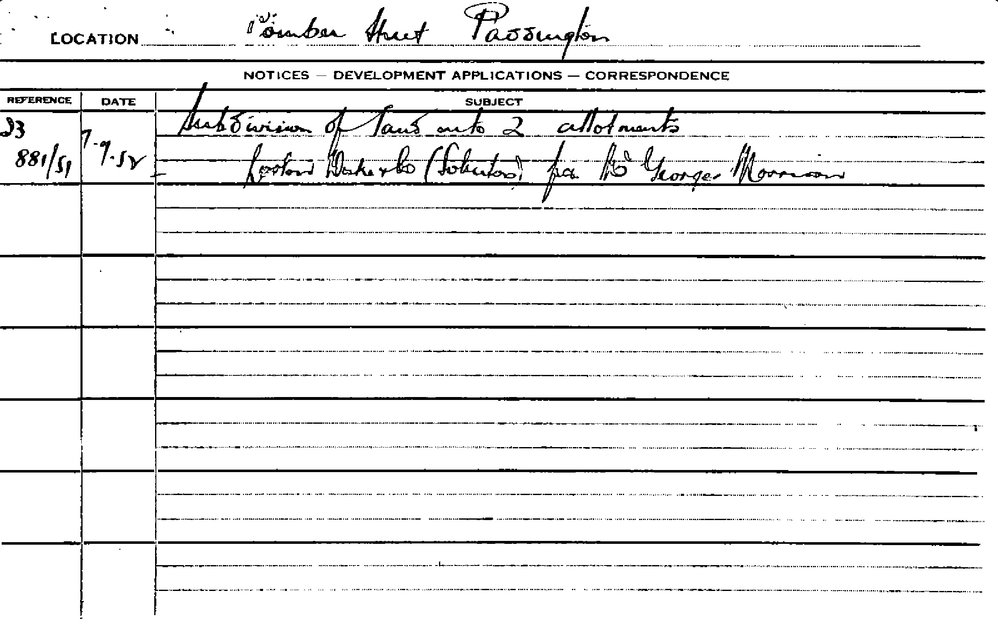 LOCATION Comber Street Paddington
NOTICES — DEVELOPMENT APPLICATIONS — CORRESPONDENCE
REFERENCE DATE SUBJECT
Subdivision of land into 2 allotments
881/51 7.9.52
(Solicitors) for George Morrison